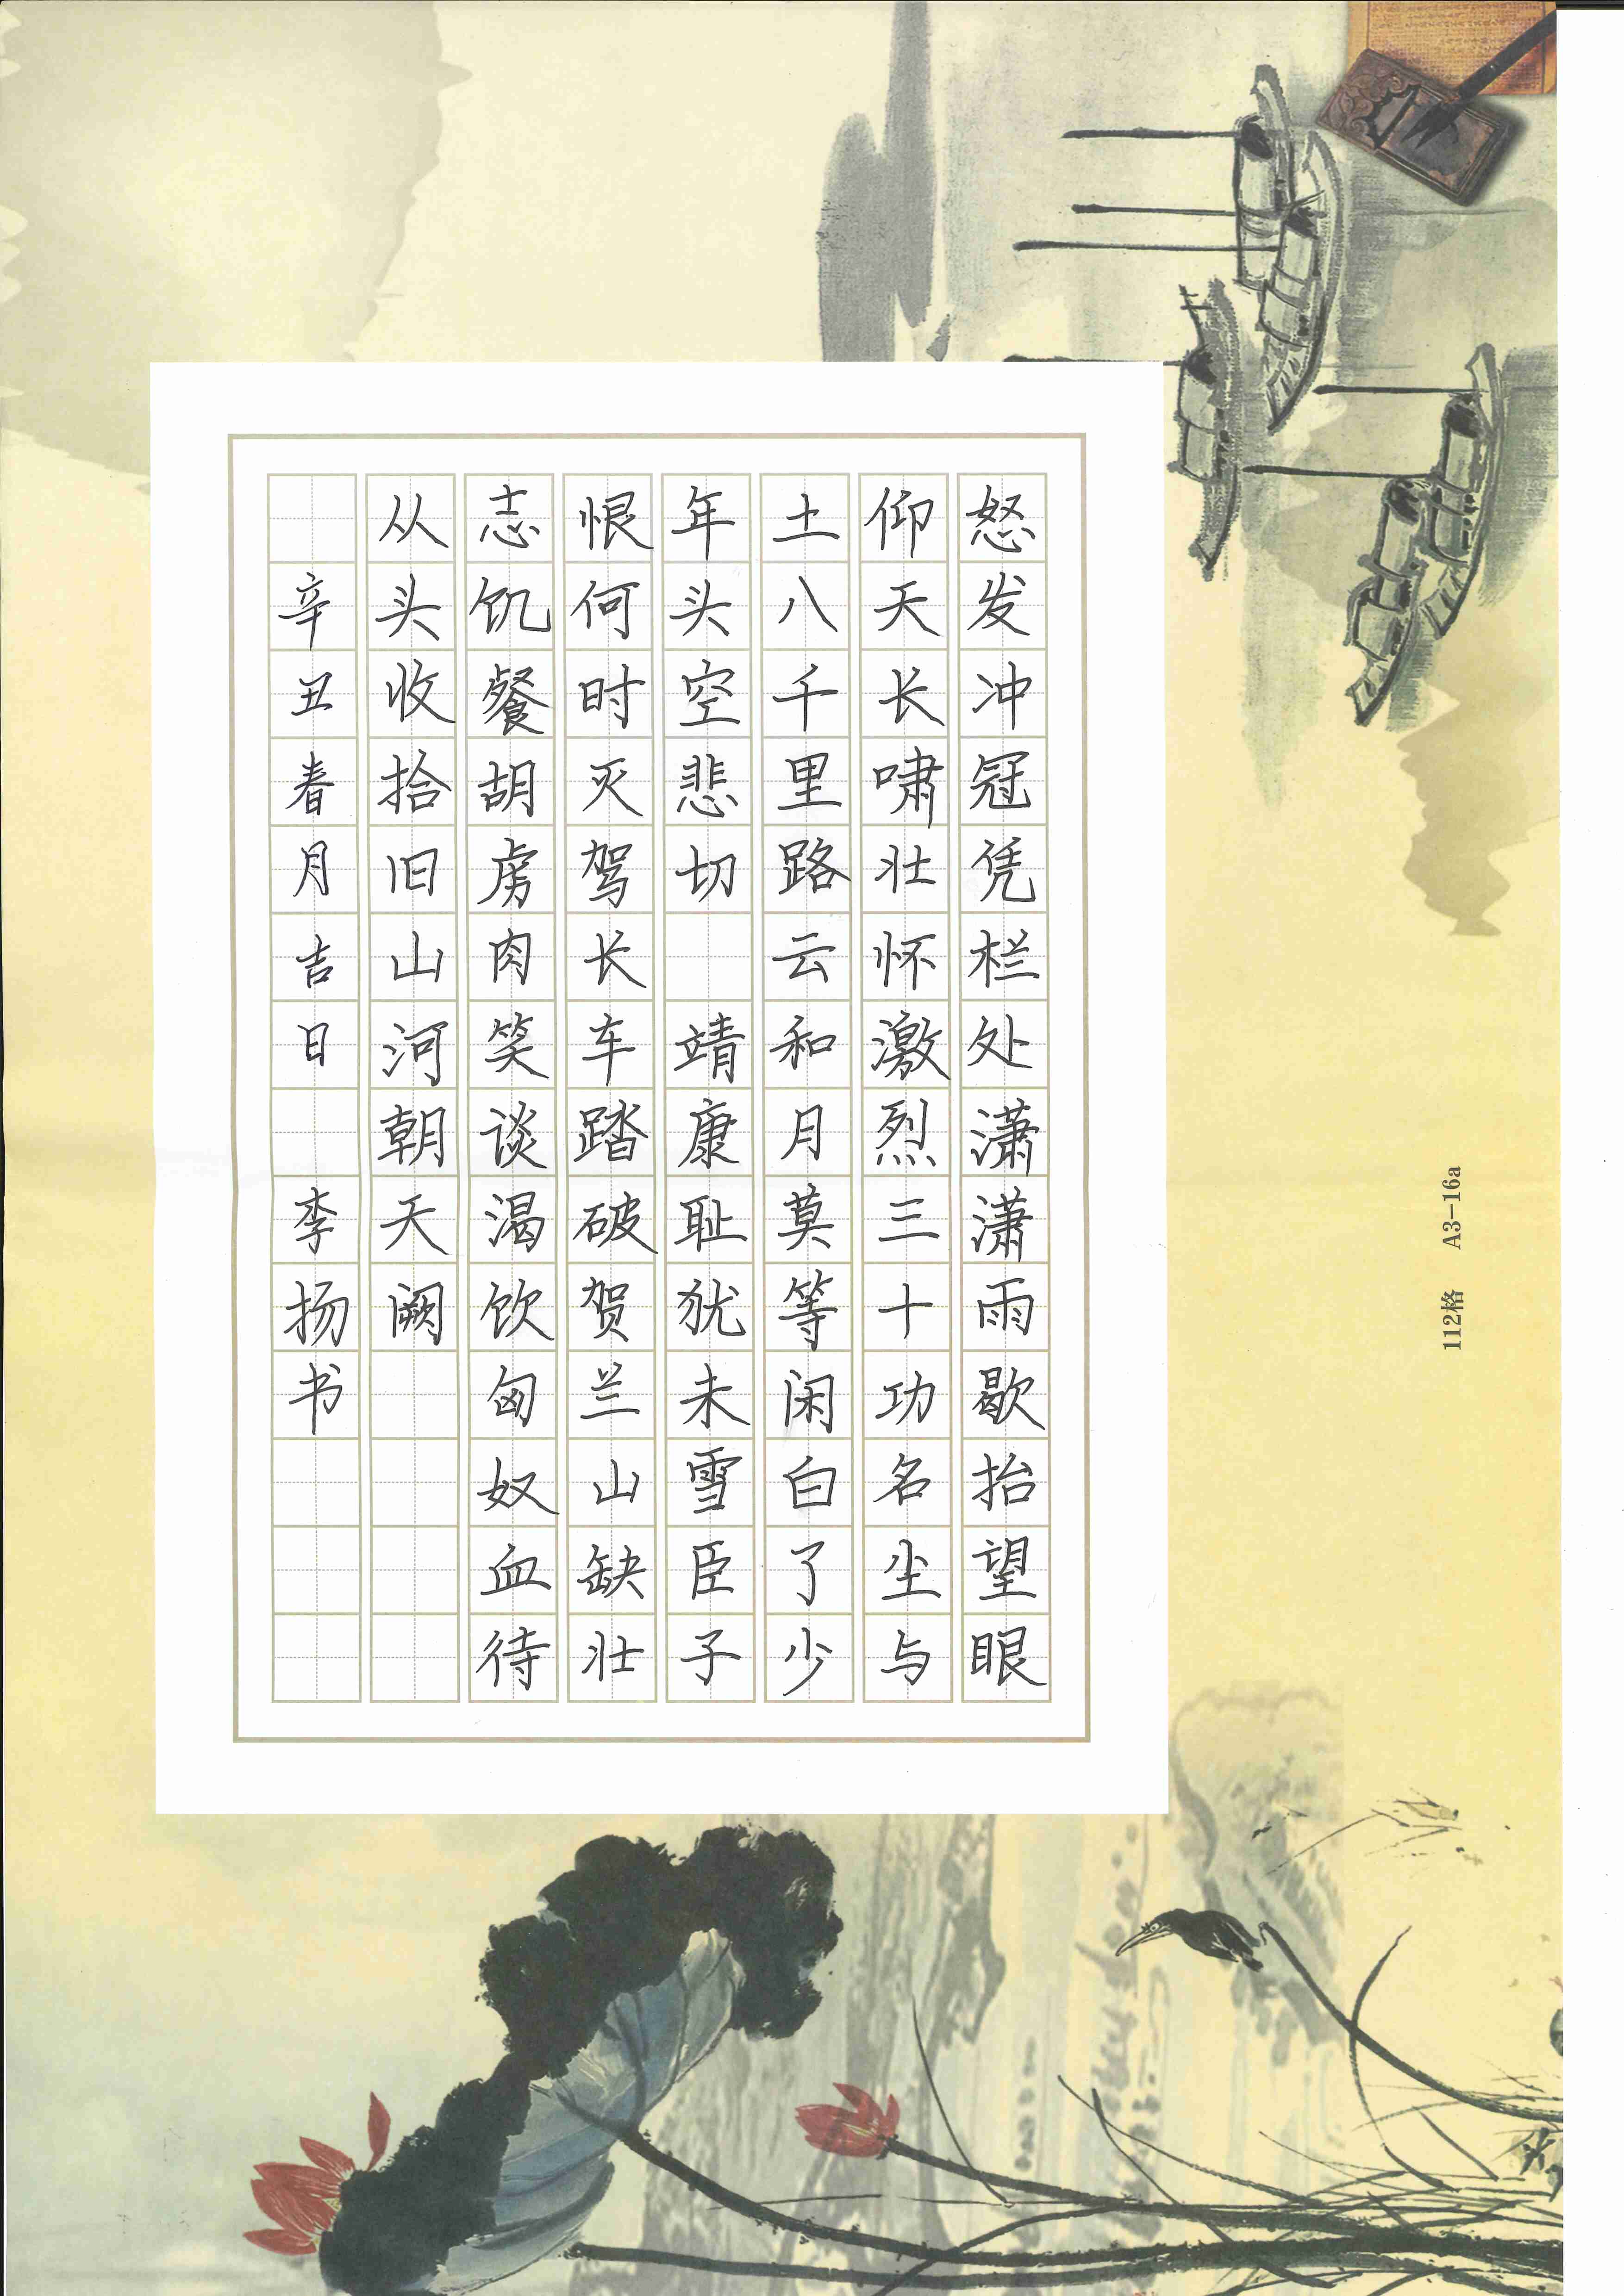 怒发冲冠凭栏处潇潇雨歇抬望眼
仰天长啸壮怀激烈三十功名尘与
土八千里路云和月莫等闲白了少
年头空悲切 靖康耻犹未雪臣子
恨何时灭驾长车踏破贺兰山缺壮
志饥餐胡虏肉笑谈渴饮匈奴血待
从头收拾旧山河朝天阙
辛丑春月吉日 李扬书
112格 A3-16a